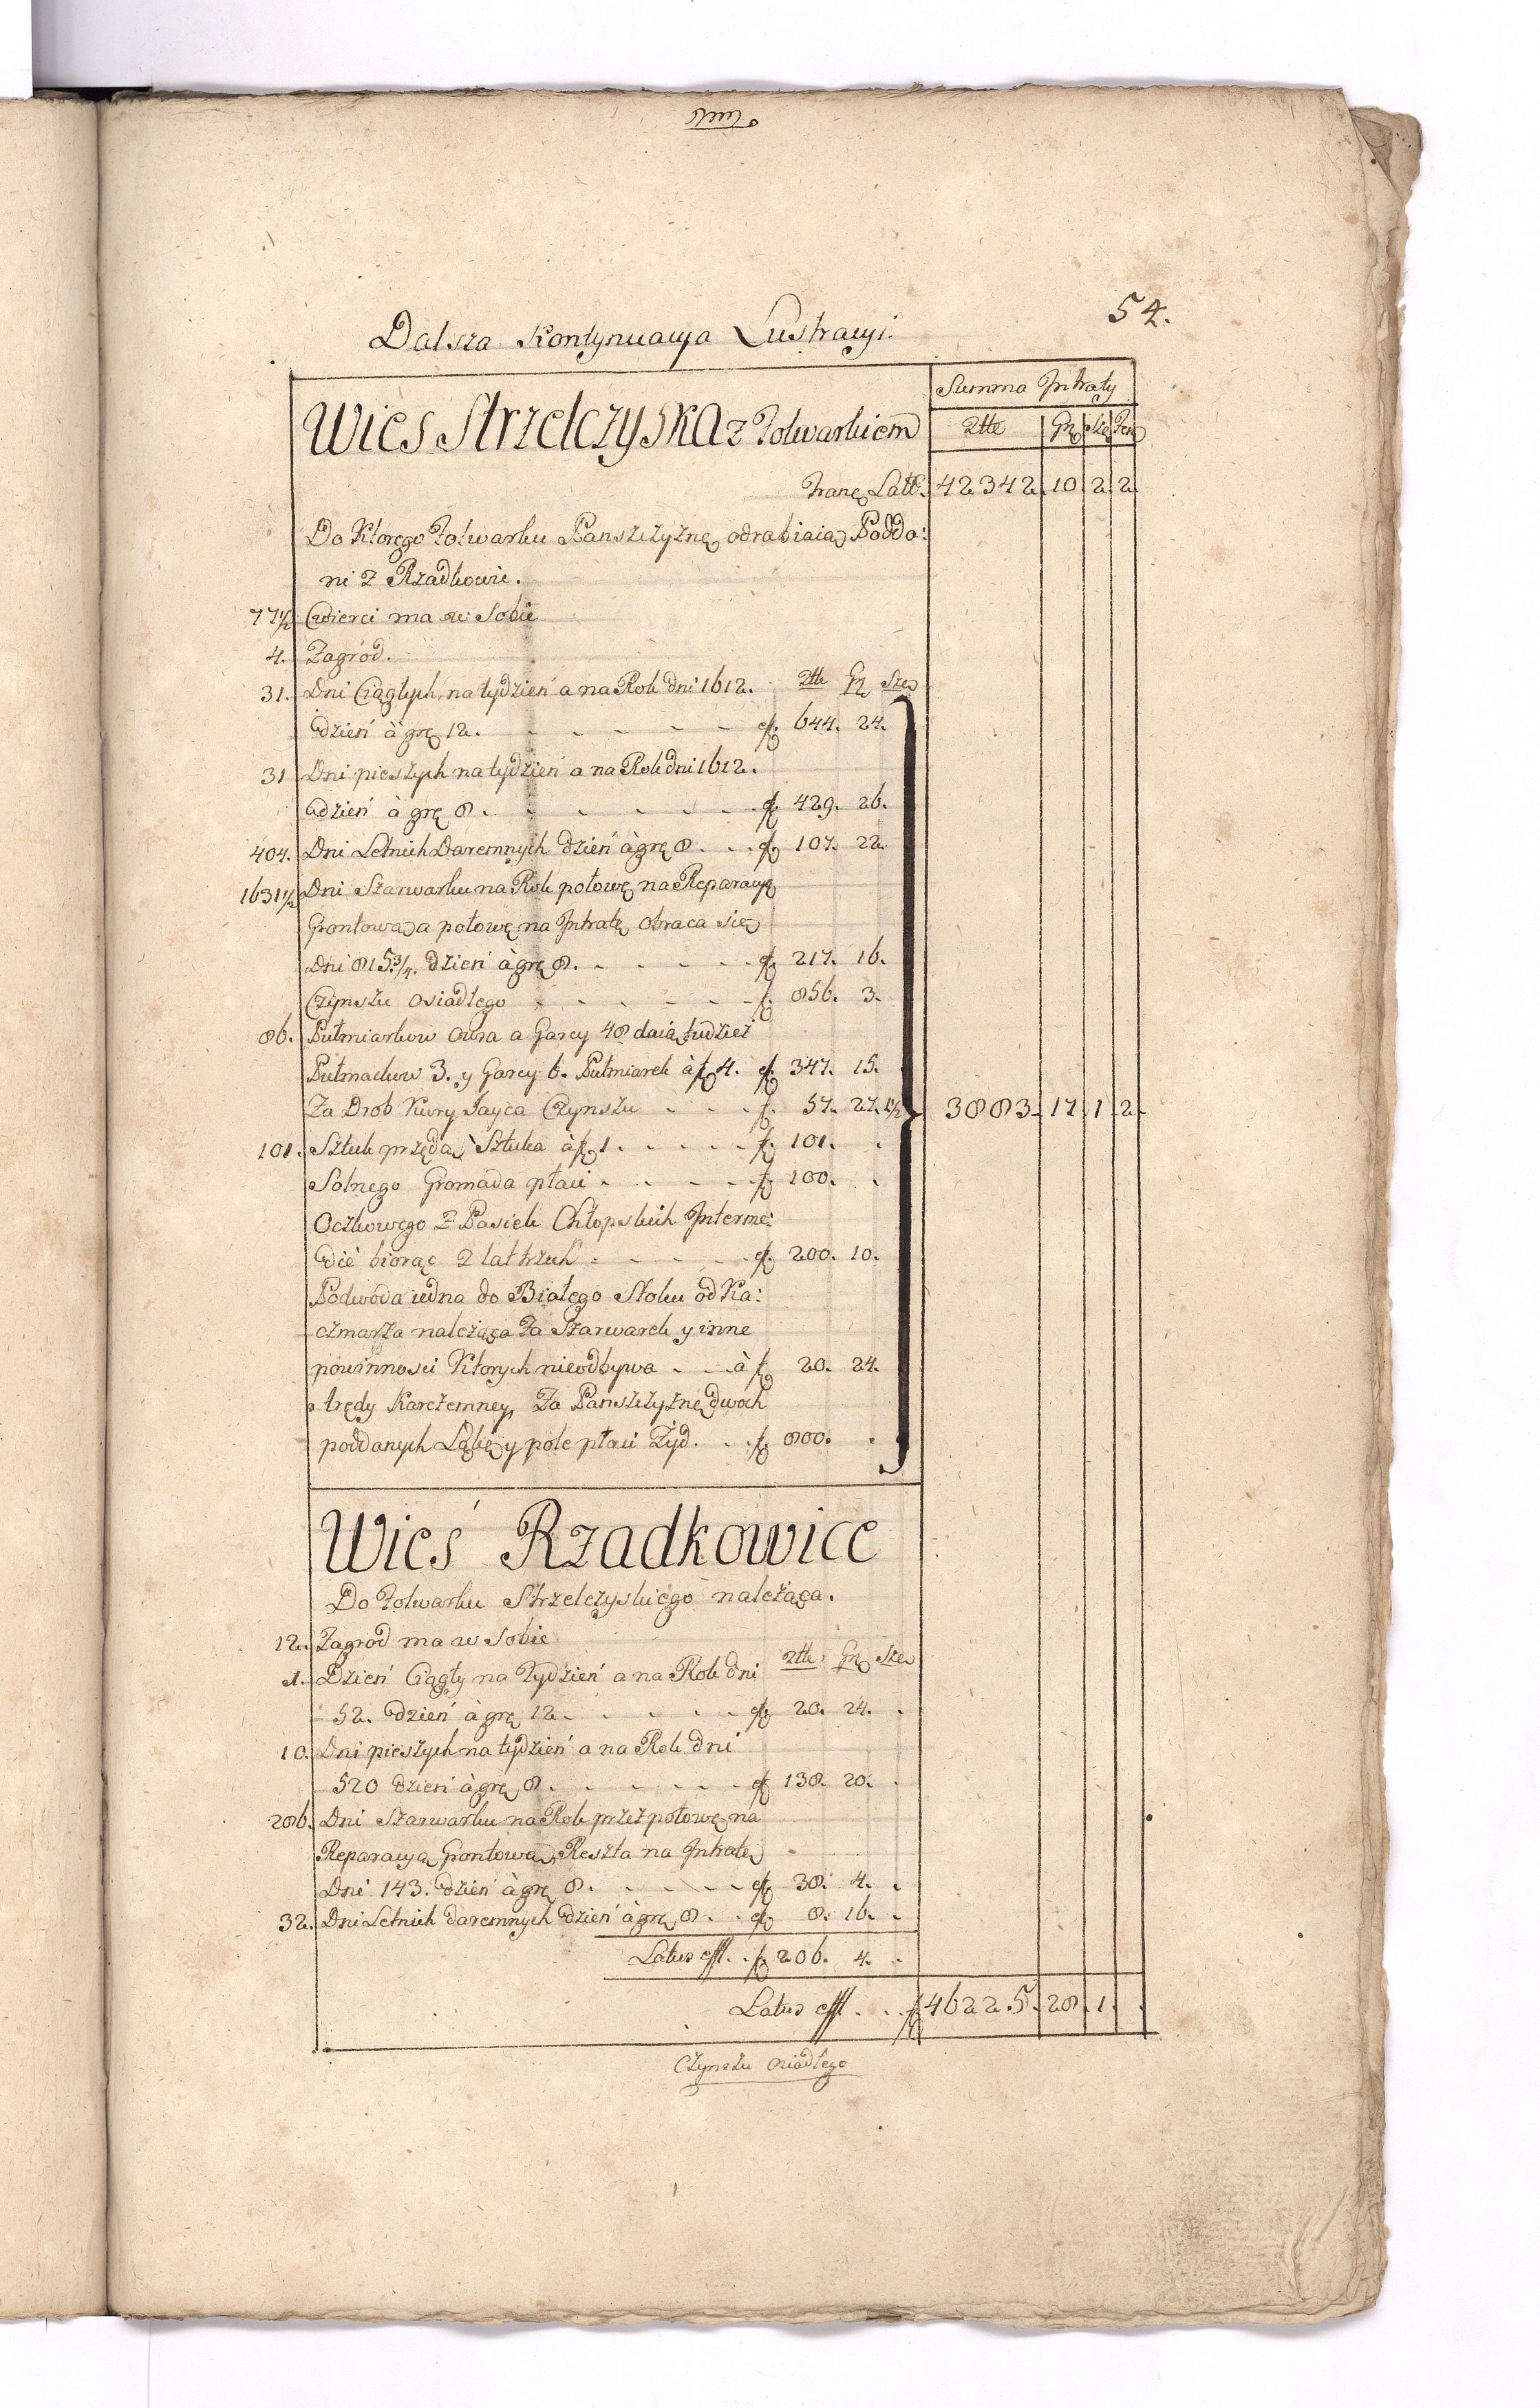 54.
Dalsza Kontynuacya Lustracyi.
Summa Intraty
Wies Strzelczyska z Folwarkiem Złłe Gr Sze Fen
Trans. Latt. 42342. 10. 2. 2
Do Ktorego Folwarku Panszczyznę odrabiaią Podda:
ni z Rzadkowic.
77½ Cwierci ma w Sobie
4. Zagród.
31. Dni Ciągłych na tydzień a na Rok dni 1612. Złłe Gr Sze
dzień à grę 12. - - - - - f. 644. 24.
31 Dni pieszych na tydzień a na Rok dni 1612.
dzień à grę 8. - - - - - f. 429. 26.
404. Dni Letnich Daremnych dzień à grę 8. - - f. 107. 22.
1631½ Dni Szarwarku na Rok połowę na Reparacyę
Grontową a połowę na Intratę obraca się
Dni 815¾. dzień à grę 8. - - - - - f. 217. 16.
Czynszu osiadłego - - - - - f. 856. 3.
86. Pułmiarkow owsa a Garcy 48 daią tudzież
Pułmackow 3. y Garcy 6. Pułmiarek à f 4. f. 347. 15.
Za Drob Kury Jayca Czynszu - - - f. 57. 27. 1½ 3883. 17. 1. 2.
101. Sztuk przędą Sztuka à f 1. - - - - f. 101. -
Solnego Gromada płaci - - - - f. 100. -
Oczkowego Z Pasiek Chłopskich Interme:
die biorąc z lat trzech - - - - f. 200. 10.
Podwoda iedna do Białego Stoku od Ka:
czmarza należąca Za Szarwark y inne
powinnosci Ktorych nieodbywa - - à f. 20. 24.
Arędy Karczemney, Za Panszczyznę dwoch
poddanych Łąkę y pole płaci Żyd. - - f. 800. -
Wieś Rzadkowice
Do Folwarku Strzelczyskiego należąca.
12. Zagrod ma w Sobie
1. Dzień Ciągły na Tydzień a na Rok dni Złłe Gr Sze
52. dzień à grę 12. - - - - - f. 20. 24. -
10. Dni pieszych na tydzień a na Rok dni
520 dzień à grę 8. - - - - - f. 138. 20. -
286. Dni Szarwarku na Rok przez połowę na
Reparacyą Grontową, Reszta na Intratę
Dni 143. dzień à grę 8. - - - - f. 38. 4. -
32. Dni Letnich daremnych dzień à grę 8. - - f. 8. 16. -
Latus eff. - f 206. 4. -
Latus eff. - - f 46225. 28. 1.
Czynszu osiadłego